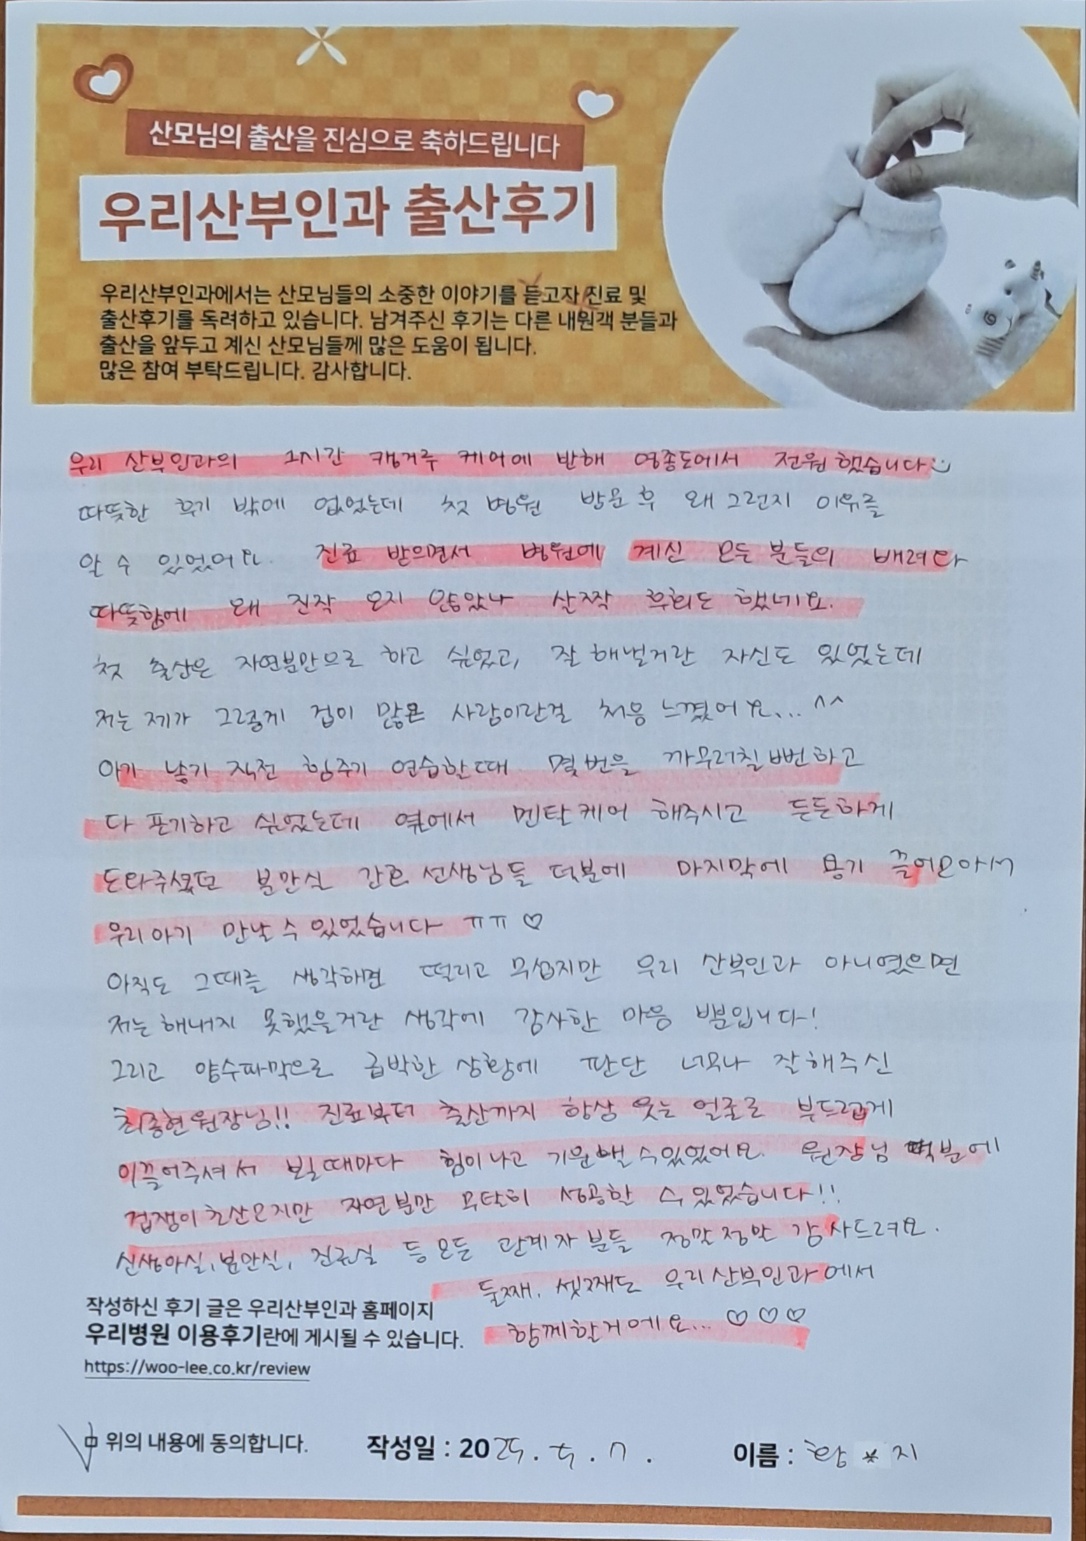 산모님의 출산을 진심으로 축하드립니다
우리산부인과 출산후기
우리산부인과에서는 산모님들의 소중한 이야기를 듣고자 진료 및
출산후기를 독려하고 있습니다. 남겨주신 후기는 다른 내원객 분들과
출산을 앞두고 계신 산모님들께 많은 도움이 됩니다.
많은 참여 부탁드립니다. 감사합니다.
우리 산부인과의 1시간 캥거루 케어에 반해 영종도에서 전원 했습니다
따뜻한 후기 밖에 없었는데 첫 병원 방문 후 왜 그런지 이유를
알 수 있었어요. 진료 받으면서 병원에 계신 모든 분들의 배려와
따뜻함에 왜 진작 오지 않았나 살짝 후회도 했네요.
첫 출산은 자연분만으로 하고 싶었고, 잘 해낼거란 자신도 있었는데
저는 제가 그렇게 겁이 많은 사람이란걸 처음 느꼈어요... ^^
아기 낳기 직전 힘주기 연습할때 몇번을 까무러칠뻔하고
다 포기하고 싶었는데 옆에서 멘탈케어 해주시고 든든하게
도와주셨던 분만실 간호 선생님들 덕분에 마지막에 용기 끌어모아서
우리아기 만날 수 있었습니다 ㅠㅠ ♡
아직도 그때를 생각하면 떨리고 무섭지만 우리 산부인과 아니였으면
저는 해내지 못했을거란 생각에 감사한 마음 뿐입니다!
그리고 양수파막으로 급박한 상황에 판단 너무나 잘해주신
최종현원장님!! 진료부터 출산까지 항상 웃는 얼굴로 부드럽게
이끌어주셔서 뵐때마다 힘이나고 기운낼 수있었어요. 원장님 덕분에
겁쟁이 초산모지만 자연분만 무탈히 성공할 수 있었습니다!!
신생아실, 분만실, 진료실 등 모든 관계자 분들 정말정말 감사드려요.
둘째, 셋째도 우리산부인과에서
함께할거에요... ♡♡♡
작성하신 후기 글은 우리산부인과 홈페이지
우리병원 이용후기란에 게시될 수 있습니다.
https://woo-lee.co.kr/review
위의 내용에 동의합니다.
작성일 : 2025. 5. 7.
이름 : 황*지